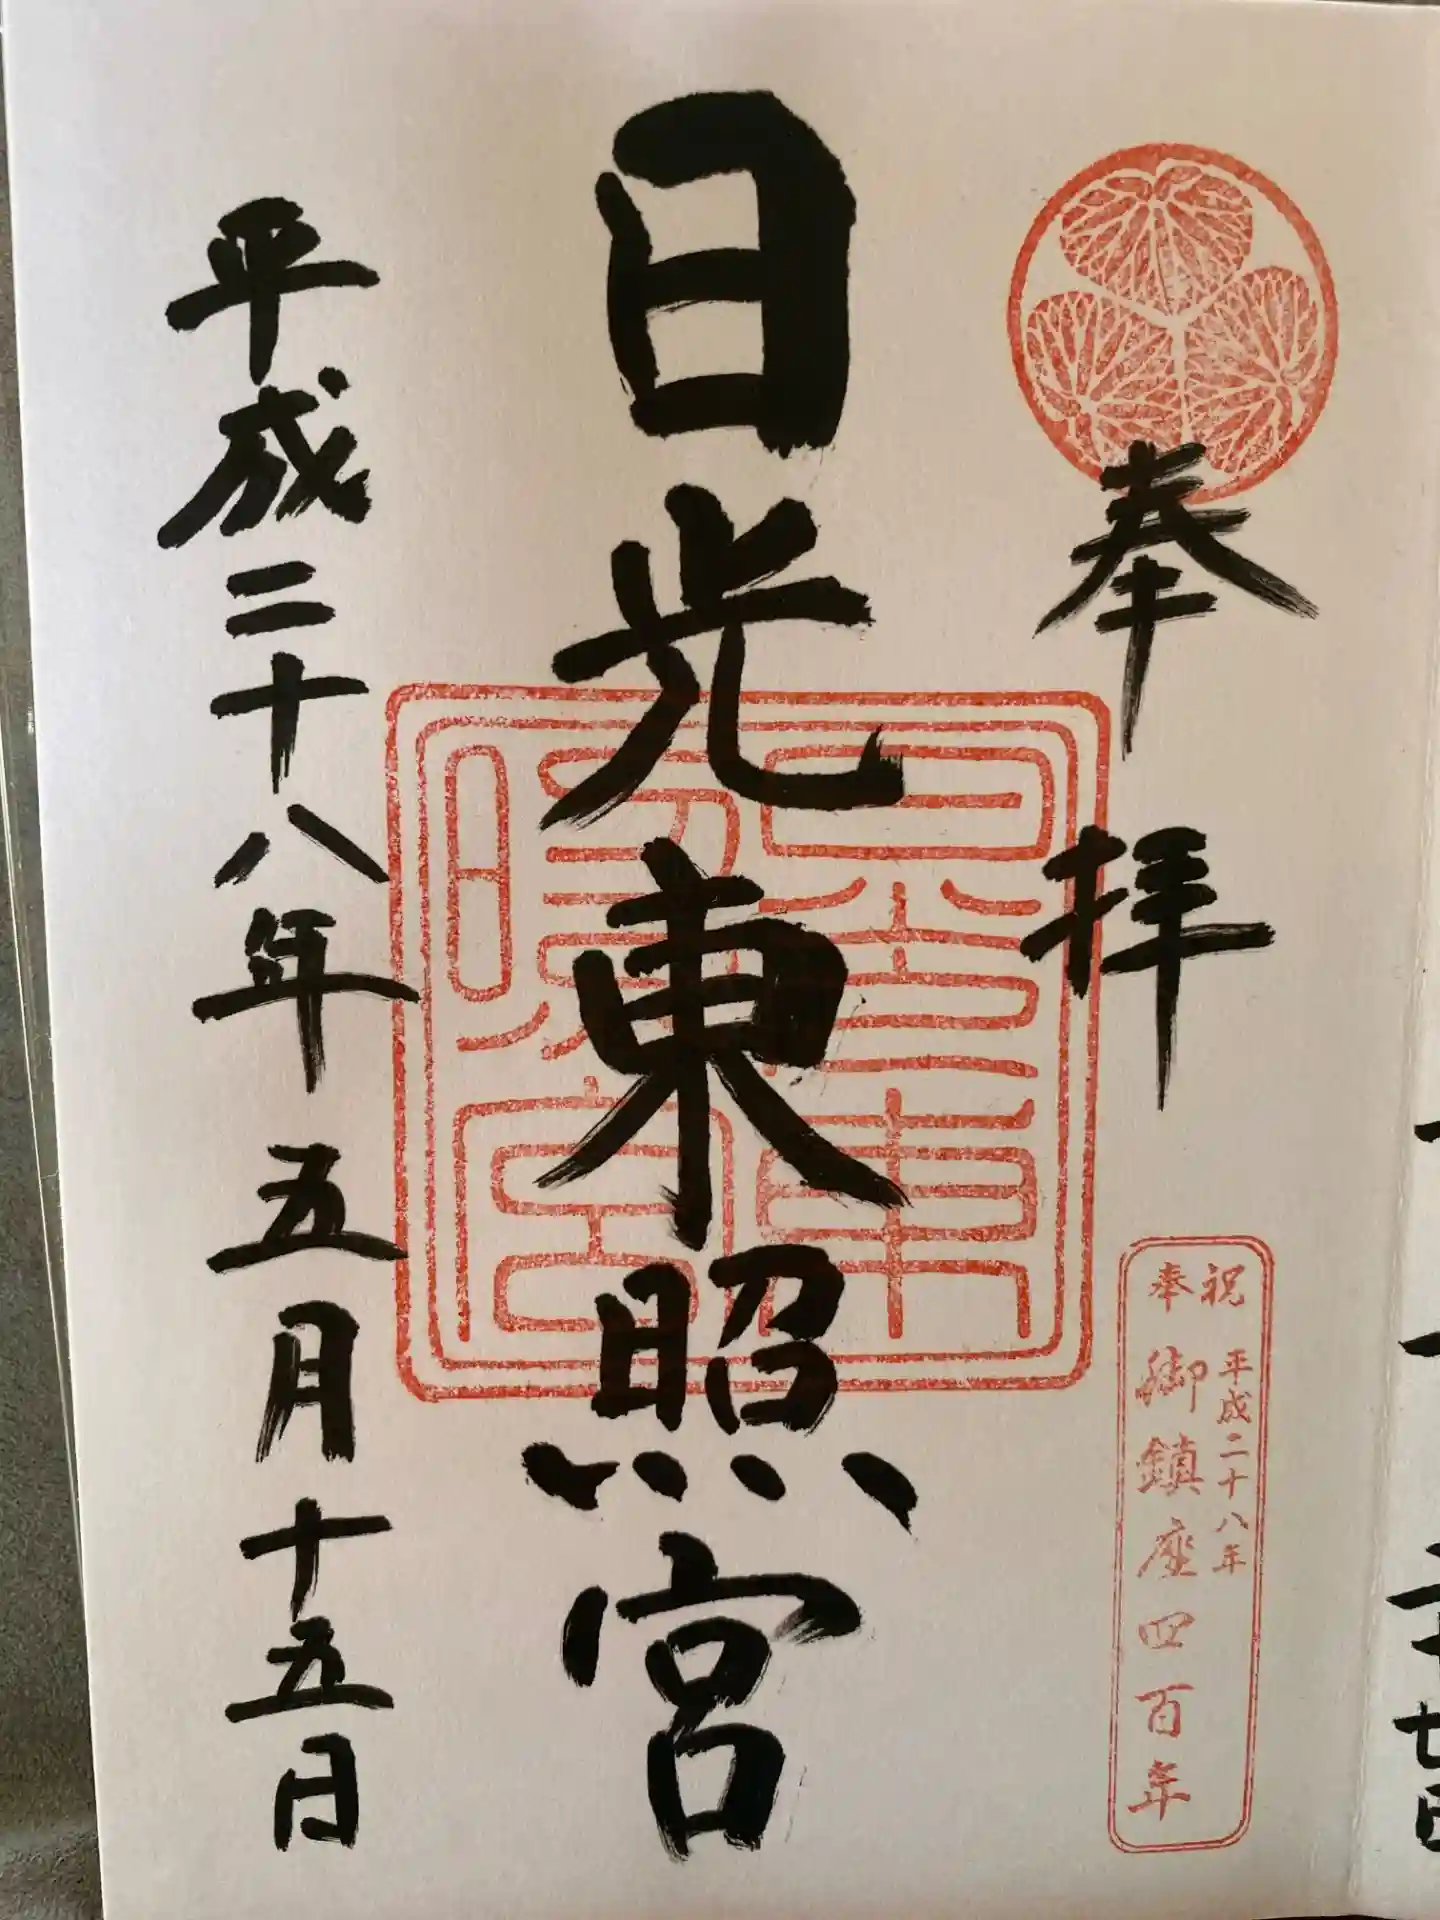 奉拝
奉祝
平成二十八年
御鎮座四百年
日光東照宮
平成二十八年五月十五日